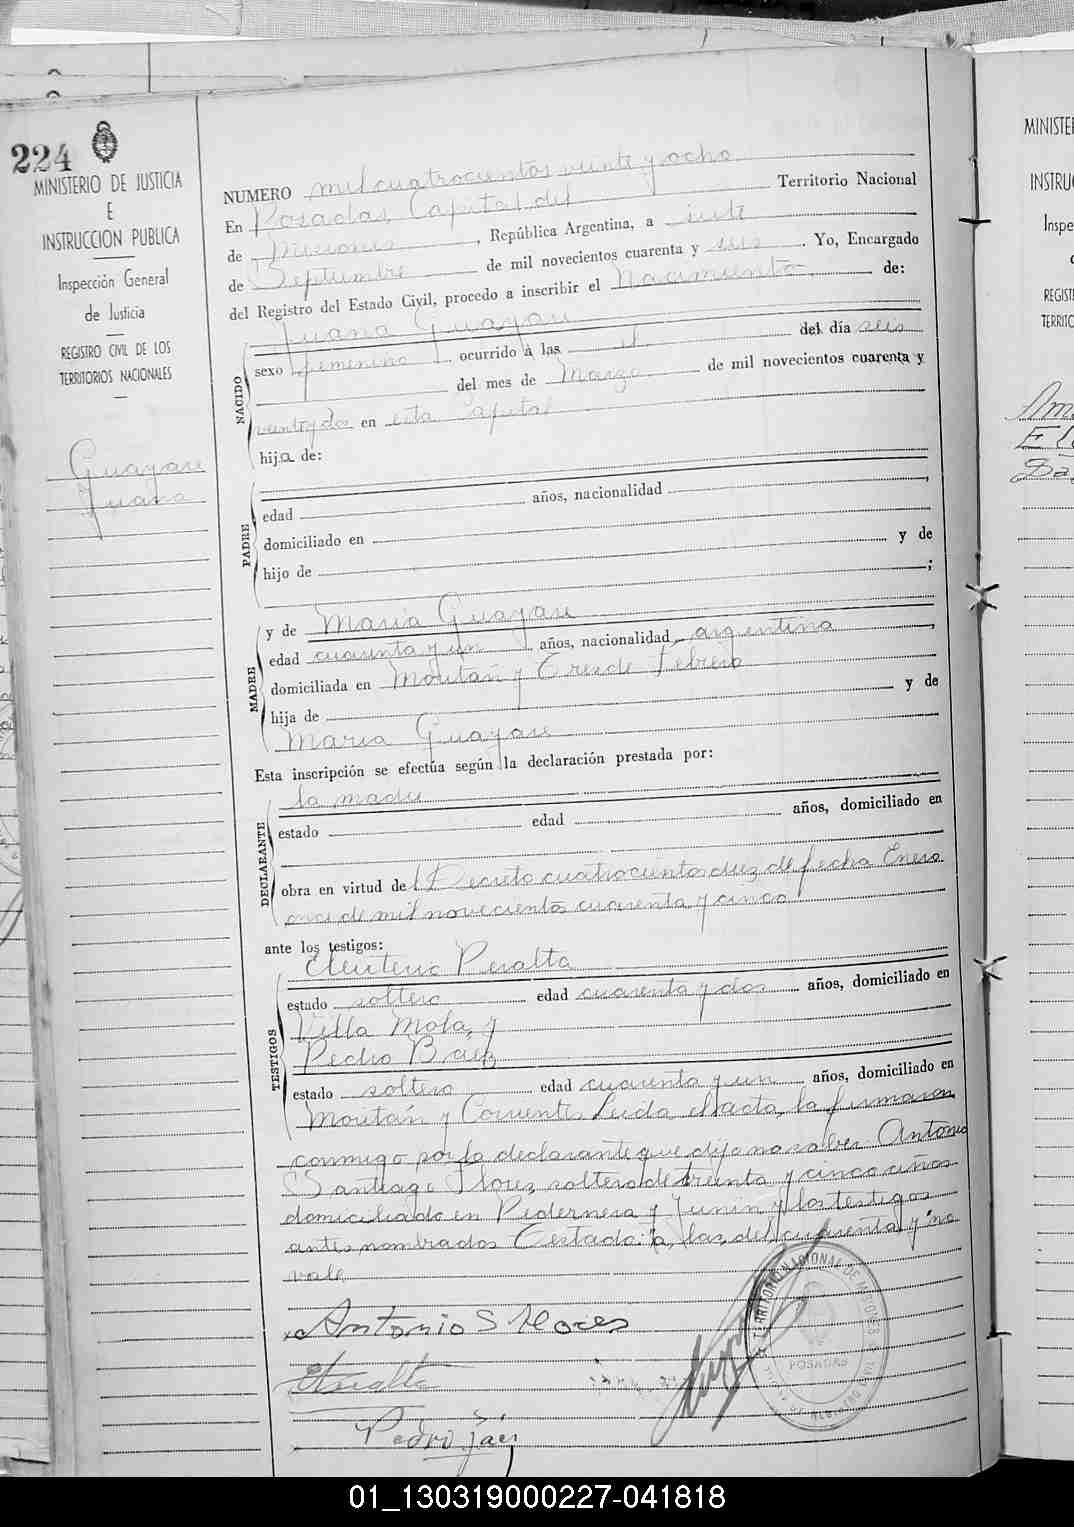 224
MINISTERIO DE JUSTICIA
E
INSTRUCCION PUBLICA
Inspección General
de Justicia
REGISTRO CIVIL DE LOS
TERRITORIOS NACIONALES
Guayare
Juana
NUMERO mil cuatrocientos veinte y ocho
En Posadas, Capital del Territorio Nacional
de Misiones, República Argentina, a siete
de Septiembre de mil novecientos cuarenta y seis. Yo, Encargado
del Registro del Estado Civil, procedo a inscribir el Nacimiento de:
NACIDO
Juana Guayare
sexo femenino ocurrido à las del día seis
del mes de Marzo de mil novecientos cuarenta y
veintydos en esta Capital
hija de:
PADRE
edad años, nacionalidad ,
domiciliado en
hijo de y de
;
MADRE
y de Maria Guayare
edad cuarenta y un años, nacionalidad argentina,
domiciliada en Moritán y Trece de Febrero
hija de y de
Maria Guayare
Esta inscripción se efectúa según la declaración prestada por:
DECLARANTE
la madre
estado edad años, domiciliado en
obra en virtud del Decreto cuatrocientos diez de fecha Enero
once de mil novecientos cuarenta y cinco
ante los testigos:
TESTIGOS
Eleuterio Peralta
estado soltero edad cuarenta y dos años, domiciliado en
Villa Mola, y
Pedro Báez
estado soltero edad cuarenta y un años, domiciliado en
Moritán y Corrientes Leída el acta, la firmaron
conmigo por la declarante que dijo no saber Antonio
Santiago Flores, soltero de treinta y cinco años
domiciliado en Pedernera y Junin y los testigos
antes nombrados Testado: a, las, del, cuarenta y no
vale
Antonio S Flores
EPeralta
Pedro Jáez
TERRITORIO NACIONAL DE MISIONES
POSADAS
MINISTE
INSTRU
Inspe
REGIST
TERRITO
01_130319000227-041818